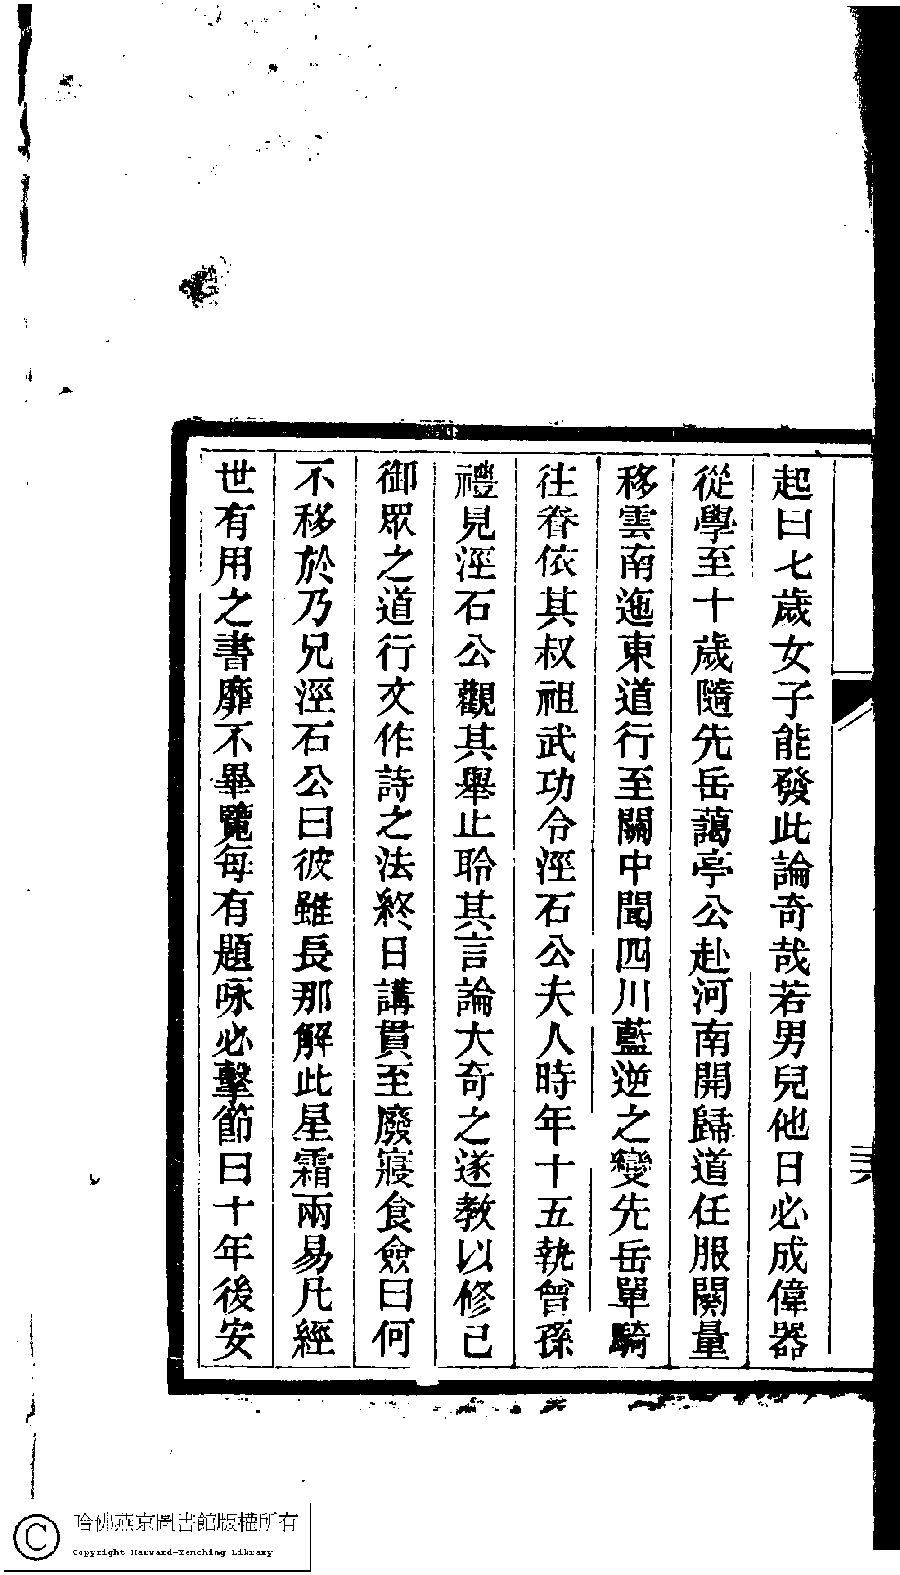 起曰七歲女子能發此論奇哉若男兒他日必成偉器
從學至十歲隨先岳藹亭公赴河南開歸道任服闋量
移雲南迤東道行至關中聞四川藍逆之變先岳單騎
往眷依其叔祖武功令涇石公夫人時年十五執曾孫
禮見涇石公觀其舉止聆其言論大奇之遂教以修己
御眾之道行文作詩之法終日講貫至廢寢食僉曰何
不移於乃兄涇石公曰彼雖長那解此星霜兩易凡經
世有用之書靡不畢覽每有題咏必擊節曰十年後安
哈佛燕京圖書館版權所有
Copyright Harvard-Yenching Library